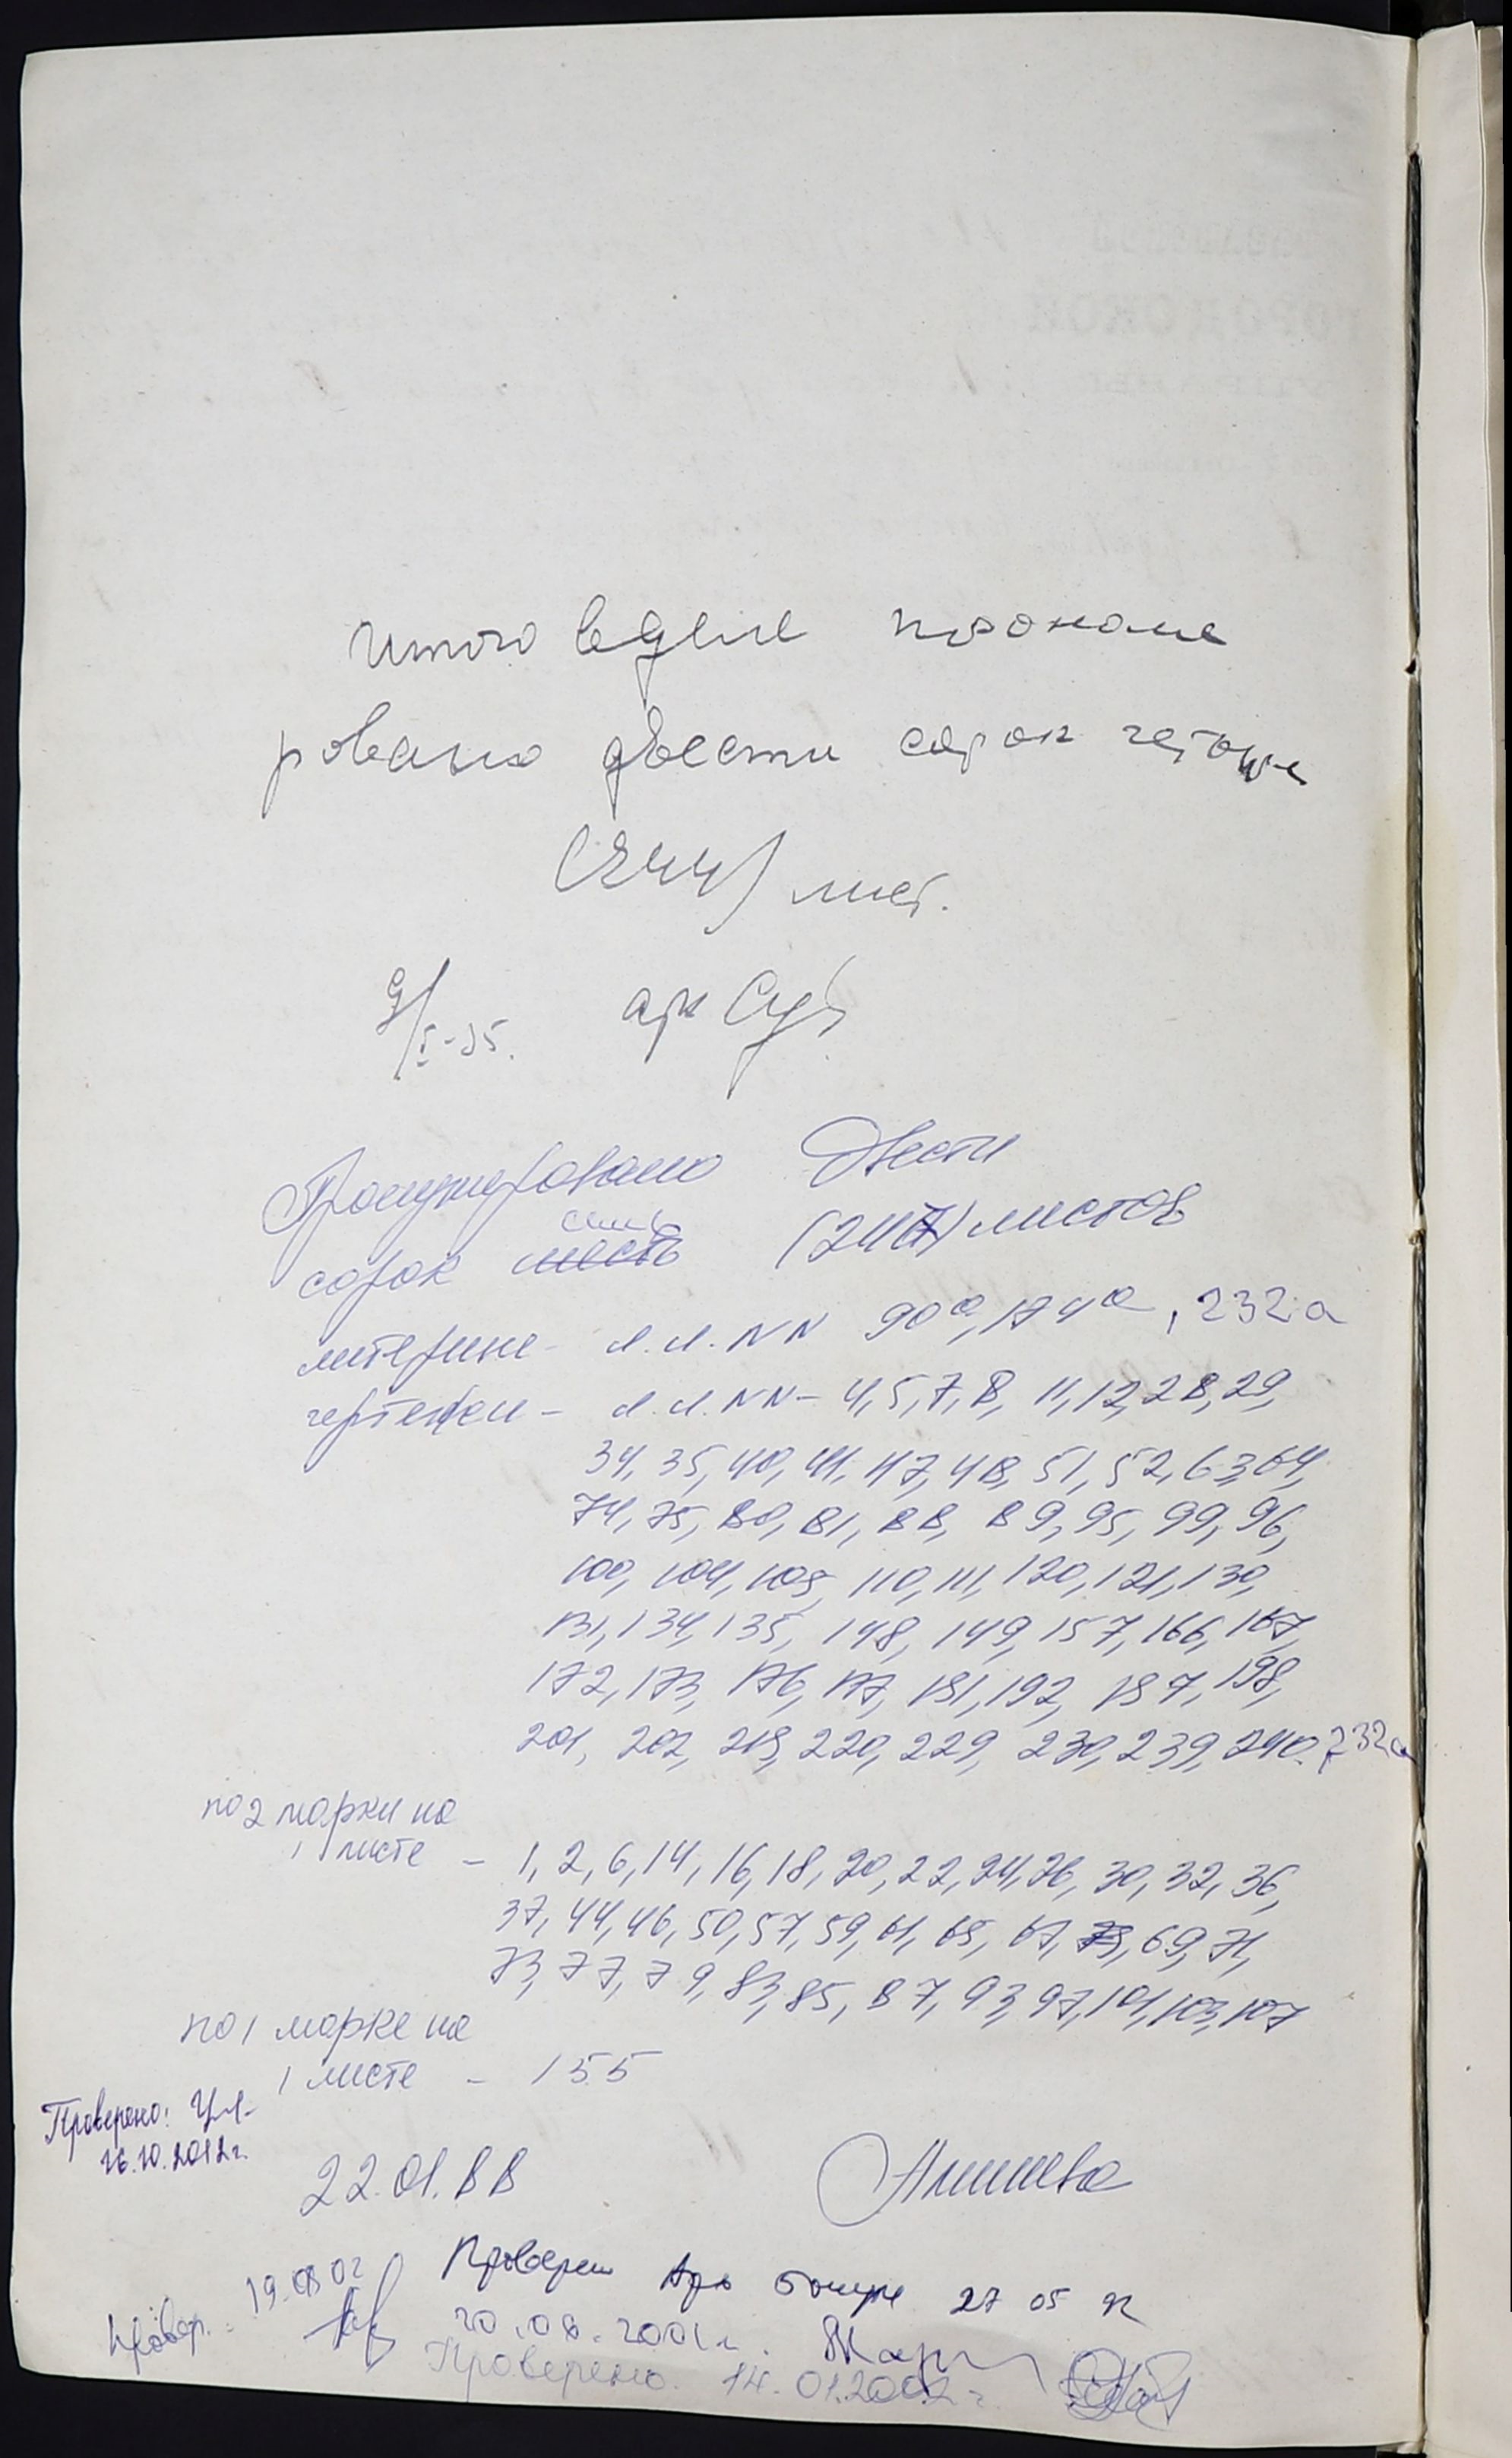 Итого в деле прономе
ровано двести сорок четыре
(244) лист.
9/I-35.
Пронумеровано Двести
семь
сорок шесть (247) листов
литерные - л.л. NN 90а, 174а, 232а
чертежи - л.л. NN - 4, 5, 7, 8, 11, 12, 28, 29,
34, 35, 40, 41, 47, 48, 51, 52, 63, 64,
74, 75, 80, 81, 88, 89, 95, 99, 96,
100, 104, 105, 110, 111, 120, 121, 130,
131, 134, 135, 148, 149, 157, 166, 167,
172, 173, 176, 177, 191, 192, 197, 198,
201, 202, 219, 220, 229, 230, 239, 240, 232а
по 2 марки на
1 листе - 1, 2, 6, 14, 16, 18, 20, 22, 24, 26, 30, 32, 36,
37, 44, 46, 50, 57, 59, 61, 65, 67, 73, 69, 71,
73, 77, 79, 83, 85, 87, 93, 97, 101, 103, 107
по 1 марке на
1 листе - 155
Проверено:
26.10.2012г.
22.01.88
Проверен 27 05
Провер. 19.08 02
20.08.2001г.
Проверено. 14.01.2002г.